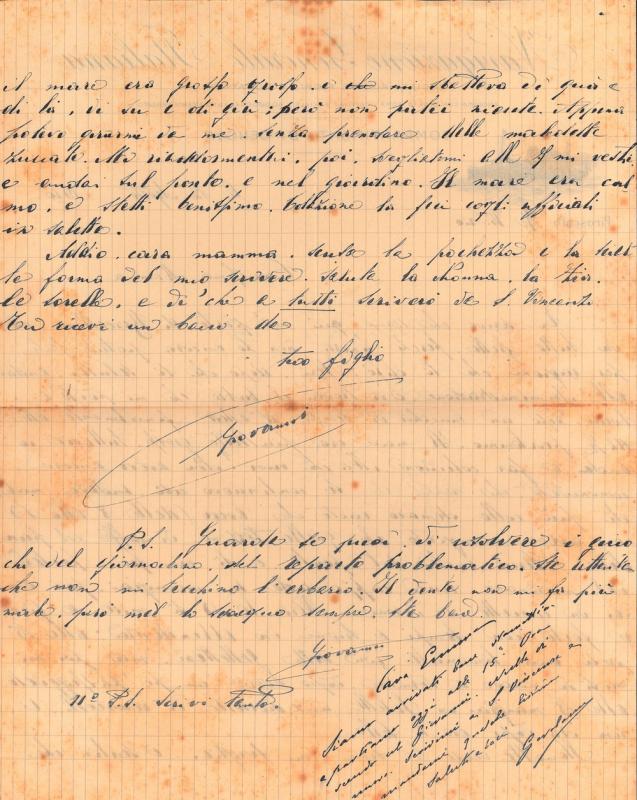 il mare era grosso grosso. e che mi sbatteva di quà e
di là, di su e di giù; però non patii niente. Appena
potevo girarmi in me. senza prendere delle maledette
zuccate. Mi riaddormentai, poi, svegliatomi alle 7 mi vestii
e andai sul ponto. e nel giardino. Il mare era cal
mo. e stetti benissimo. Colazione la feci cogli ufficiali
in saletta.
Addio. cara mamma. scusa la pochezza e la
le forma del mio scrivere. saluta la Nonna. la zia.
le sorelle. e di' che a tutti scriverò da S. Vincenzo
Tu ricevi un bacio da
tuo figlio
Giovanni
P.S. Guarda se puoi. di risolvere i giuo
chi del giornalino. del reparto problematico. Sta attenta
che non mi tocchino l'erbario. Il dente non mi fa più
male. però me lo sciacquo sempre. Sta bene.
Giovanni
IIº P.S. Scrivi tanto.
Cara Emma
Siamo arrivati bene
e partiamo oggi alle 15
Giovanni. Nulla di
nuovo. Scrivimi a S. Vincenzo e
mandami
Saluti e baci